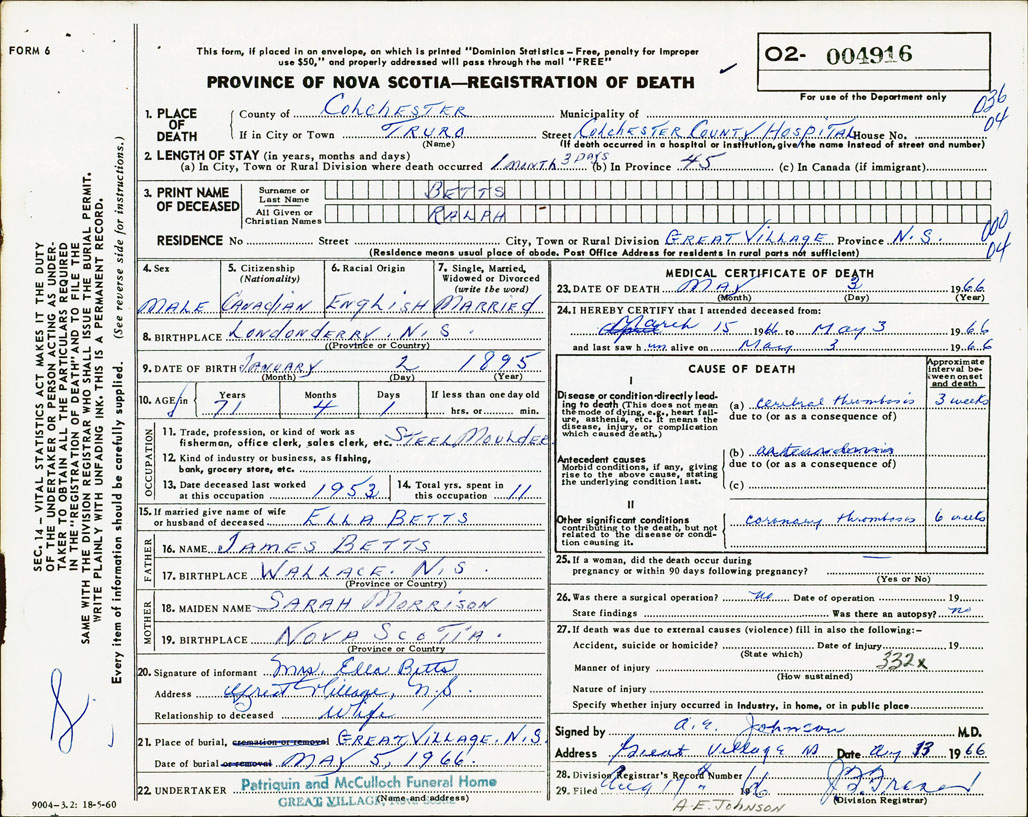 FORM 6
This form, if placed in an envelope, on which is printed "Dominion Statistics – Free, penalty for improper
use $50," and properly addressed will pass through the mail "FREE"
PROVINCE OF NOVA SCOTIA—REGISTRATION OF DEATH
02- 004916
For use of the Department only
036
04
1. PLACE OF DEATH
County of COLCHESTER Municipality of
If in City or Town TRURO Street COLCHESTER COUNTY HOSPITAL House No.
(Name) (If death occurred in a hospital or institution, give the name instead of street and number)
2. LENGTH OF STAY (in years, months and days)
(a) In City, Town or Rural Division where death occurred 1 MONTH 3 DAYS (b) In Province 45 (c) In Canada (if immigrant)
3. PRINT NAME OF DECEASED
Surname or Last Name BETTS
All Given or Christian Names RALPH
000
04
RESIDENCE No Street City, Town or Rural Division GREAT VILLAGE Province N.S.
(Residence means usual place of abode. Post Office Address for residents in rural parts not sufficient)
4. Sex MALE
5. Citizenship (Nationality) CANADIAN
6. Racial Origin ENGLISH
7. Single, Married, Widowed or Divorced (write the word) MARRIED
8. BIRTHPLACE LONDONDERRY, N.S.
(Province or Country)
9. DATE OF BIRTH JANUARY 2 1895
(Month) (Day) (Year)
10. AGE in Years 71 Months 4 Days 1 If less than one day old hrs. or min.
OCCUPATION
11. Trade, profession, or kind of work as
fisherman, office clerk, sales clerk, etc. STEEL MOULDER
12. Kind of industry or business, as fishing,
bank, grocery store, etc.
13. Date deceased last worked at this occupation 1953
14. Total yrs. spent in this occupation 11
15. If married give name of wife
or husband of deceased ELLA BETTS
FATHER
16. NAME JAMES BETTS
17. BIRTHPLACE WALLACE. N.S.
(Province or Country)
MOTHER
18. MAIDEN NAME SARAH MORRISON
19. BIRTHPLACE NOVA SCOTIA.
(Province or Country
20. Signature of informant Mrs. Ella Betts
Address Great Village, N.S.
Relationship to deceased Wife
21. Place of burial, cremation or removal GREAT VILLAGE. N.S.
Date of burial or removal MAY 5, 1966.
22. UNDERTAKER Patriquin and McCulloch Funeral Home
GREAT VILLAGE, NOVA SCOTIA
(Name and address)
9004–3.2: 18-5-60
MEDICAL CERTIFICATE OF DEATH
23. DATE OF DEATH MAY 3 1966
(Month) (Day) (Year)
24. I HEREBY CERTIFY that I attended deceased from:
March 15 1966 to May 3 1966
and last saw him alive on May 3 1966
CAUSE OF DEATH
Approximate interval between onset and death
I
Disease or condition directly leading to death (This does not mean the mode of dying, e.g., heart failure, asthenia, etc. It means the disease, injury, or complication which caused death.)
(a) cerebral thrombosis 3 weeks
due to (or as a consequence of)
Antecedent causes
Morbid conditions, if any, giving rise to the above cause, stating the underlying condition last.
(b)
due to (or as a consequence of)
(c)
II
Other significant conditions
contributing to the death, but not related to the disease or condition causing it.
coronary thrombosis 6 weeks
25. If a woman, did the death occur during
pregnancy or within 90 days following pregnancy?
(Yes or No)
26. Was there a surgical operation? no Date of operation 19
State findings Was there an autopsy? no
27. If death was due to external causes (violence) fill in also the following:–
Accident, suicide or homicide? Date of injury 19
(State which)
332x
Manner of injury
(How sustained)
Nature of injury
Specify whether injury occurred in industry, in home, or in public place
Signed by A. E. Johnson M.D.
Address Great Village NS Date Aug 13 1966
28. Division Registrar's Record Number
29. Filed Aug 17th 1966
(Division Registrar)
A E. JOHNSON
SEC. 14 – VITAL STATISTICS ACT MAKES IT THE DUTY
OF THE UNDERTAKER OR PERSON ACTING AS UNDER-
TAKER TO OBTAIN ALL THE PARTICULARS REQUIRED
IN THE "REGISTRATION OF DEATH" AND TO FILE THE
SAME WITH THE DIVISION REGISTRAR WHO SHALL ISSUE THE BURIAL PERMIT.
WRITE PLAINLY WITH UNFADING INK. THIS IS A PERMANENT RECORD.
Every item of information should be carefully supplied. (See reverse side for instructions.)